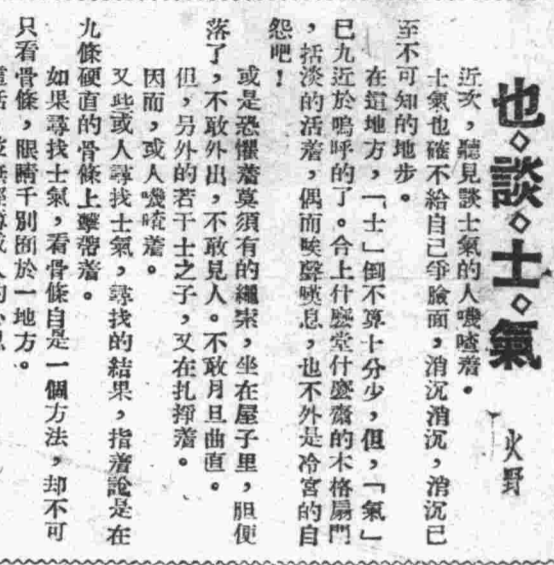 也◇談◇士◇氣
火野
近次，聽見談士氣的人嘰喳着。
士氣也確不給自己爭臉面，消沉消沉，消沉已
至不可知的地步。
在這地方，「士」倒不算十分少，但，「氣」
已九近於嗚呼的了。合上什麼堂什麼齋的木格扇門
，括淡的活着，偶而唉聲嘆息，也不外是冷宮的自
怨吧！
或是恐懼着莫須有的繩索，坐在屋子里，胆便
落了，不敢外出，不敢見人。不敢月旦曲直。
但，另外的若干士之子，又在扎掙着。
因而，或人嘰喳着。
又些或人尋找士氣，尋找的結果，指着說是在
九條硬直的骨條上擊帶着。
如果尋找士氣，看骨條自是一個方法，却不可
只看骨條，眼睛千別囿於一地方。